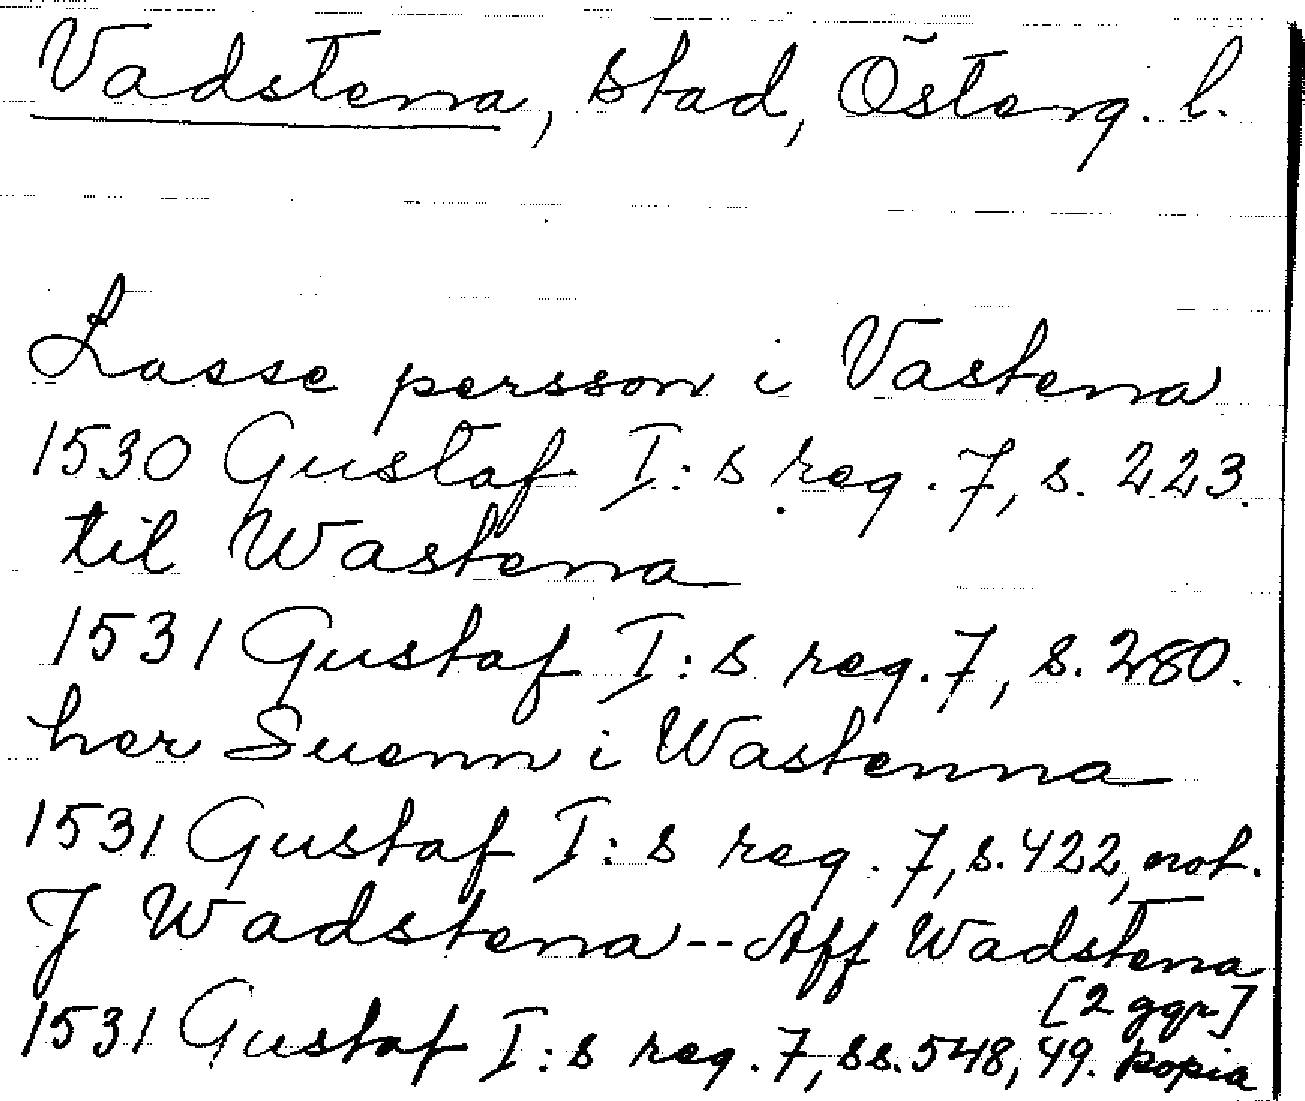 Vadstena, stad, Österg. l.
Lasse persson i Vastena
1530 Gustaf I:s reg. 7, s. 223.
til Wastena
1531 Gustaf I:s reg. 7, s. 280.
her Suenn i Wastenna
1531 Gustaf I:s reg. 7, s. 422, not.
J Wadstena -- Aff Wadstena
[2 ggr]
1531 Gustaf I:s reg. 7, ss. 548, 49. kopia